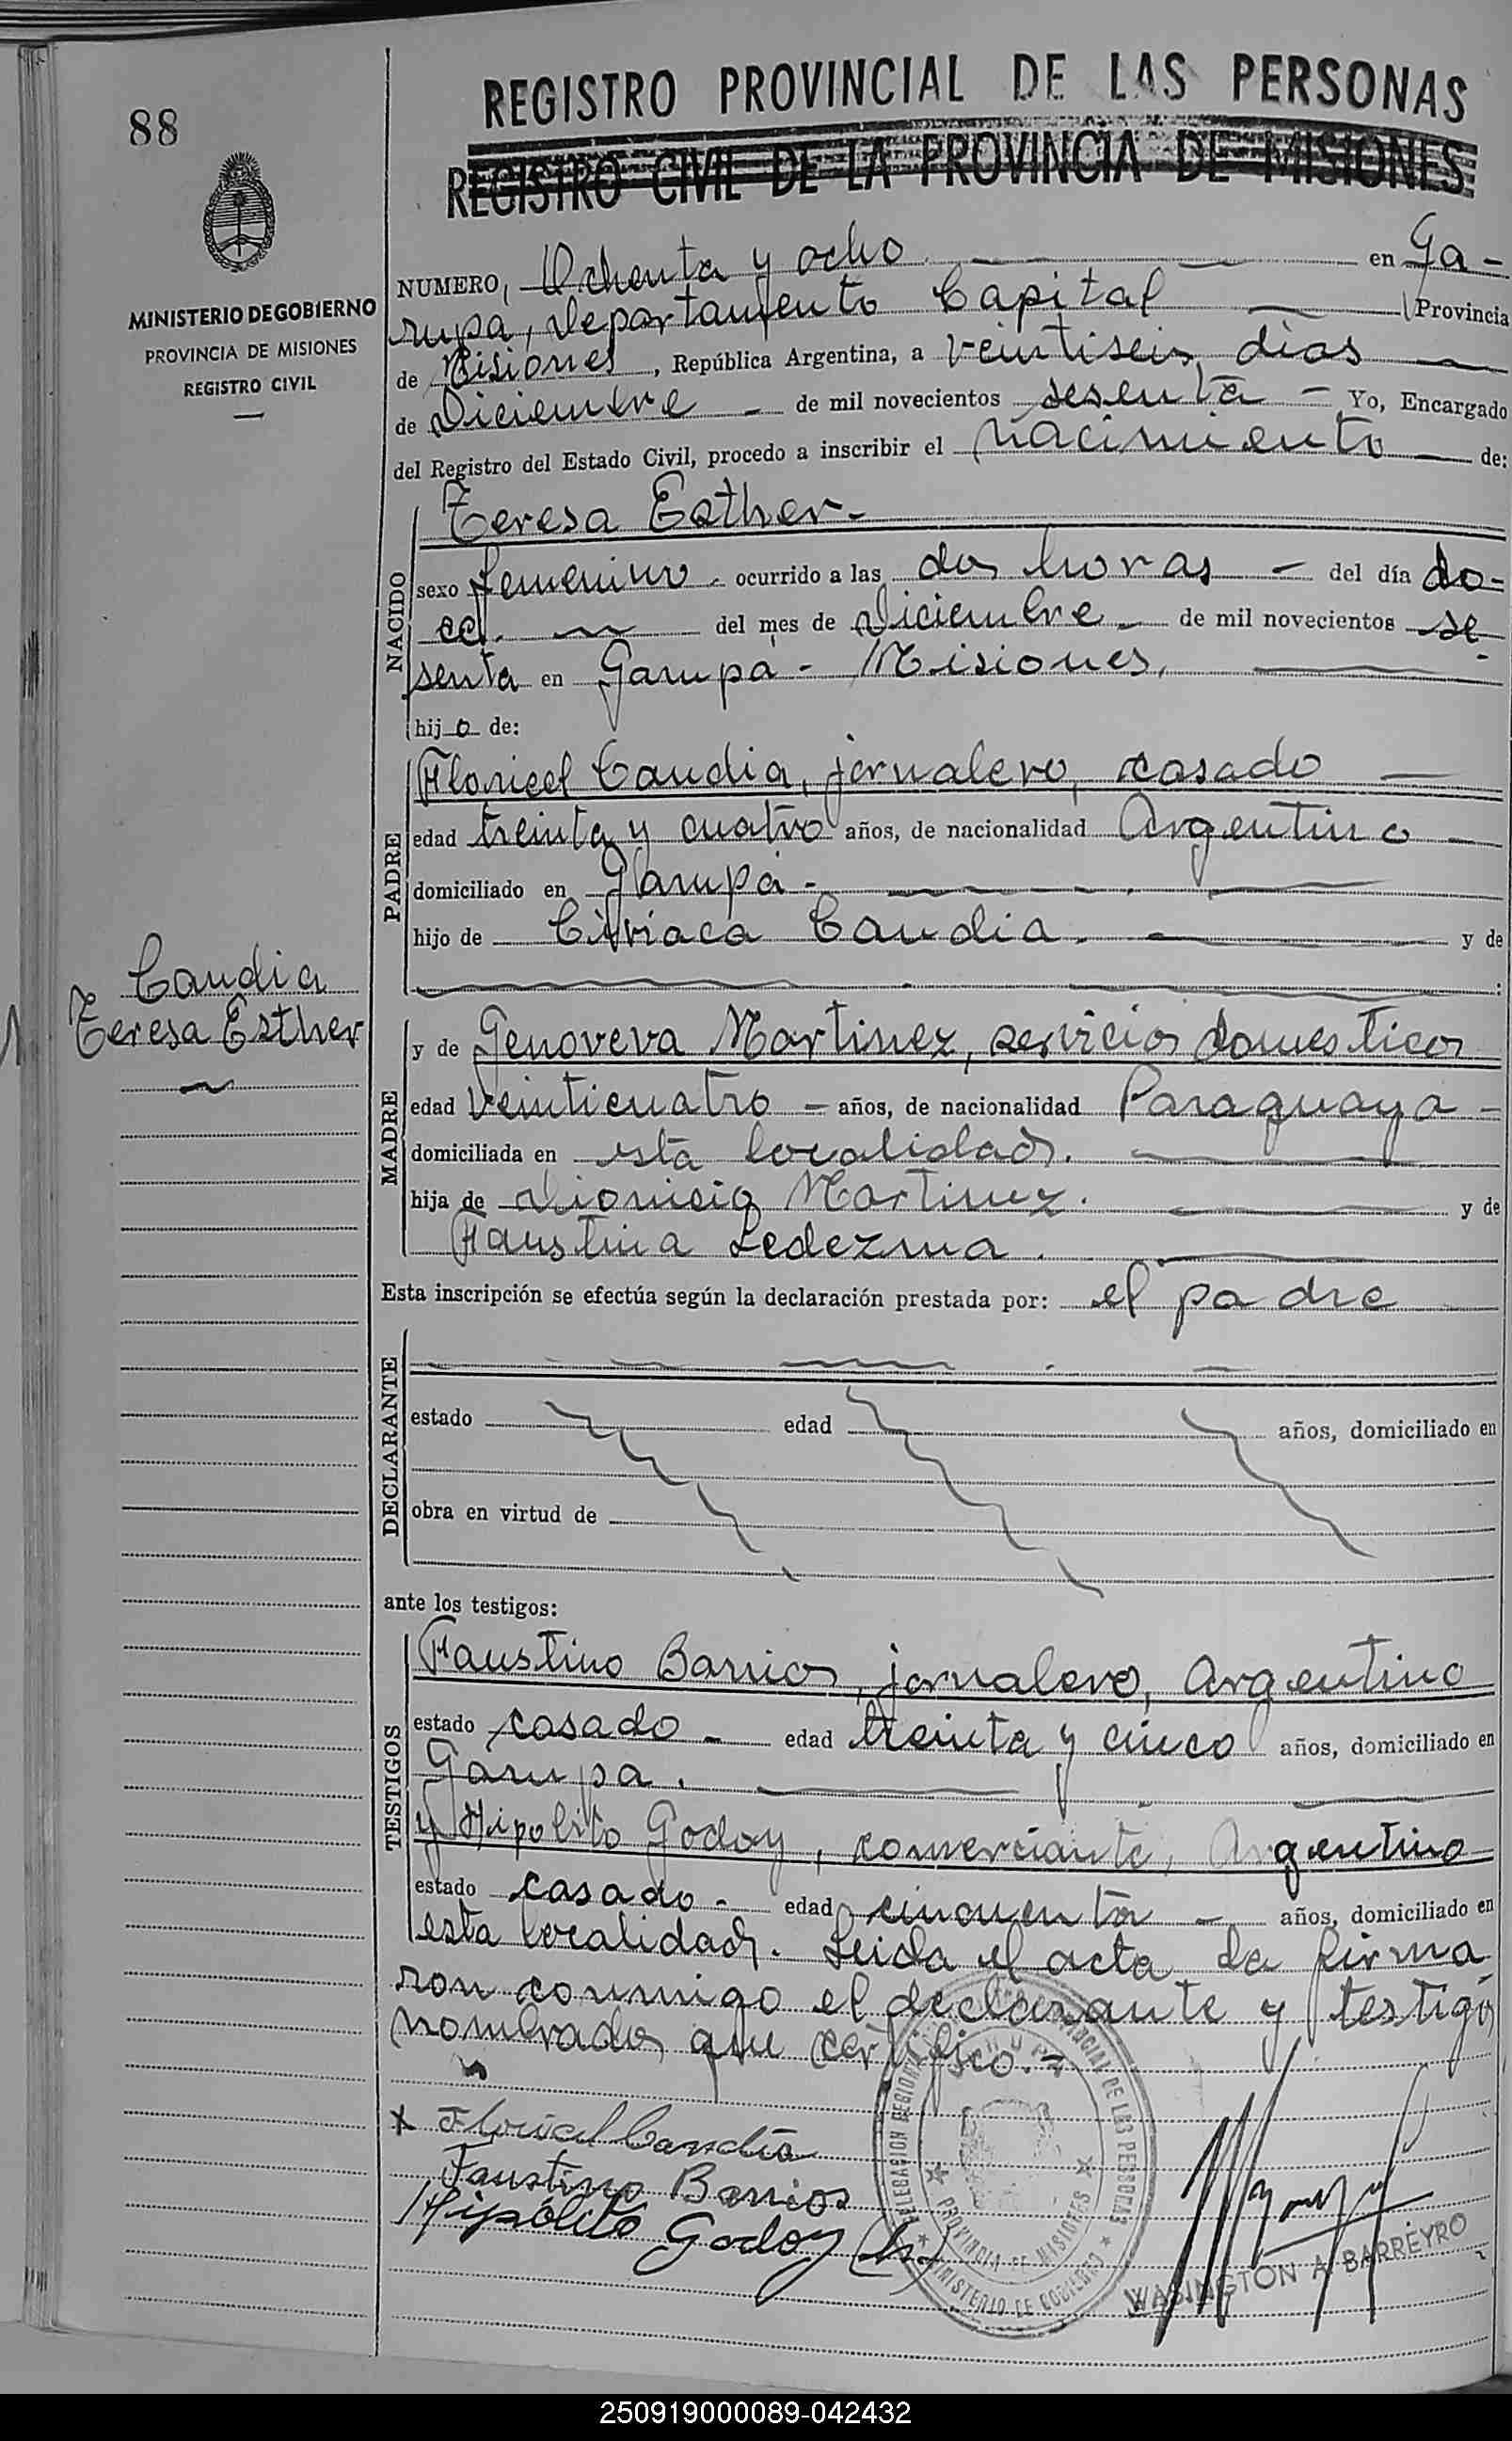 88
MINISTERIO DE GOBIERNO
PROVINCIA DE MISIONES
REGISTRO CIVIL
REGISTRO PROVINCIAL DE LAS PERSONAS
REGISTRO CIVIL DE LA PROVINCIA DE MISIONES
NUMERO, Ochenta y ocho en Ga-
rupa, departamento Capital Provincia
de Misiones, República Argentina, a veintiseis dias
de Diciembre - de mil novecientos sesenta - Yo, Encargado
del Registro del Estado Civil, procedo a inscribir el nacimiento de:
NACIDO
Teresa Esther-
sexo femenino. ocurrido a las dos horas - del día do-
ce. del mes de Diciembre - de mil novecientos se-
senta en Garupá - Misiones,
hijo de:
PADRE
Floricel Candia, jornalero, casado
edad treinta y cuatro años, de nacionalidad Argentino
domiciliado en Garupá -
hijo de Ciriaca Candia. y de
:
Candia
Teresa Esther
MADRE
y de Genoveva Martinez, servicios domesticos
edad veinticuatro - años, de nacionalidad Paraguaya -
domiciliada en esta localidad.
hija de Dionicio Martinez. y de
Faustina Ledezma.
Esta inscripción se efectúa según la declaración prestada por: el padre
DECLARANTE
estado edad años, domiciliado en
obra en virtud de
ante los testigos:
TESTIGOS
Faustino Barrios, jornalero, Argentino
estado casado - edad treinta y cinco años, domiciliado en
Garupa.
y Hipolito Godoy, comerciante, Argentino
estado casado - edad cincuenta - años, domiciliado en
esta localidad. Leida el acta la firma
ron conmigo el declarante y testigos
nombrados que certifico.-
x Floricel Candia
Faustino Barrios
Hipólito Godoy (h)
PROVINCIAL DE LAS PERSONAS
PROVINCIA DE MISIONES
MINISTERIO DE GOBIERNO
WASINGTON A. BARREYRO
250919000089-042432